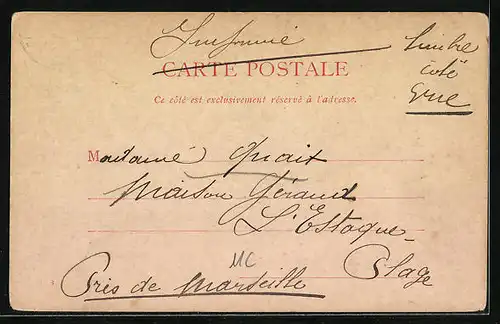 Imprimé
timbre
côté
vue
CARTE POSTALE
Ce côté est exclusivement réservé à l'adresse.
Madame Quait
Maison Géraud
L'Estaque
Plage
Près de Marseille
MC